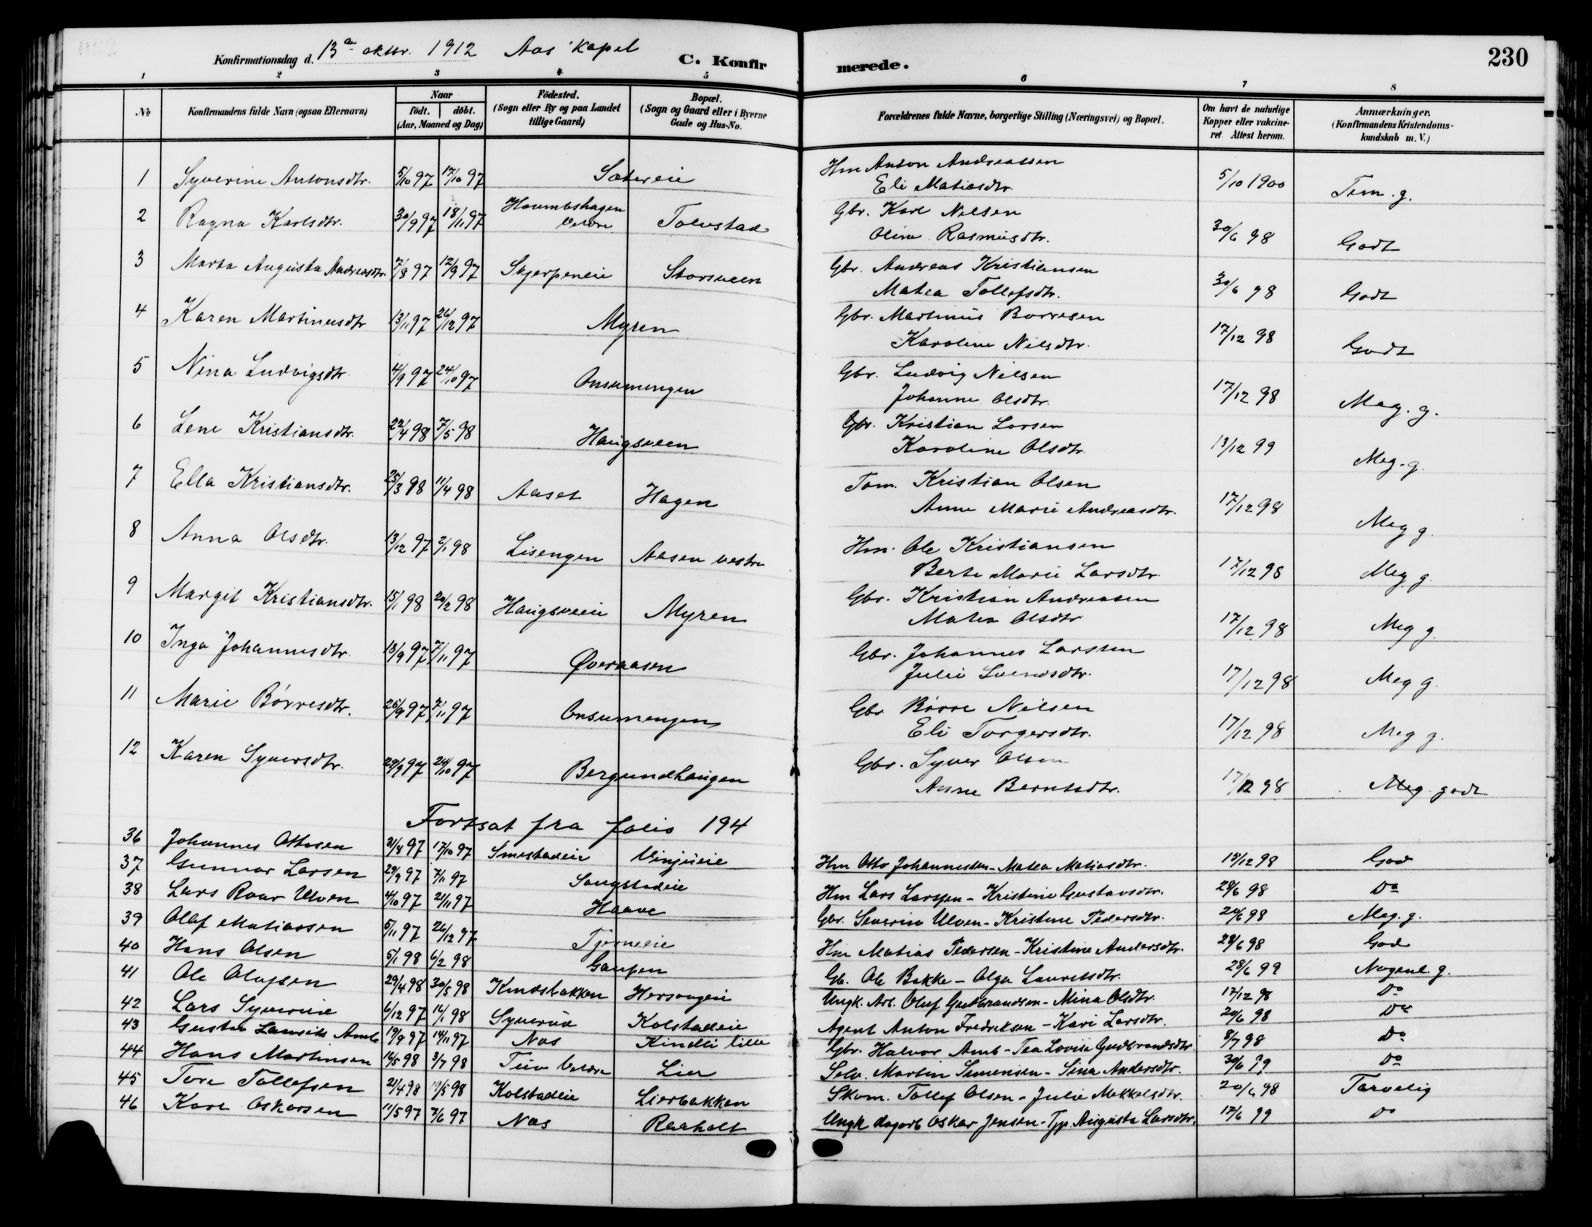 Konfirmationsdag d. 13de oktbr. 1912 Aas Kapel C. Konfirmerede. 230
1 2 3 4 5 6 7 8
No Konfirmandens fulde Navn (ogsaa Efternavn) Naar født. døbt. (Aar, Maaned og Dag) Fødested. (Sogn eller By og paa Landet tillige Gaard) Bopæl. (Sogn og Gaard eller i Byerne Gade og Hus-No. Forældrenes fulde Navne, borgerlige Stilling (Næringsvei) og Bopæl. Om havt de naturlige Kopper eller vakcineret Attest herom. Anmærkninger. (Konfirmandens Kristendomskundskab m. V.)
1 Syverine Antonsdtr. 5/10 97 17/10 97 Sætereie Hm Anton Andreassen
Eli Matiasdtr. 5/10 1900 Tem. g.
2 Ragna Karlsdtr. 30/9 97 18/11 97 Tolvstad Gbr. Karl Nilsen
Oline Rasmusdtr. 30/6 98 Godt
3 Marta Augusta Andreasdtr. 7/8 97 12/9 97 Skjerpeneie Storsveen Gbr. Andreas Kristiansen
Matea Tollefsdtr. 30/6 98 Godt
4 Karen Martinusdtr 13/11 97 26/12 97 Myren Gbr. Martinus Borresen
Karoline Nilsdtr. 17/12 98 Godt
5 Nina Ludvigsdtr. 4/9 97 24/10 97 Onsumengen Gbr. Ludvig Nilsen
Johanne Olsdtr. 17/12 98 Meg. g.
6 Lene Kristiansdtr. 22/4 98 7/5 98 Haugsveen Gbr. Kristian Larsen
Karoline Olsdtr. 13/12 99 Meg. g.
7 Ella Kristiansdtr. 25/3 98 11/4 98 Aaset Hagen Tom. Kristian Olsen
Anne Marie Andreasdtr. 17/12 98 Meg g.
8 Anna Olsdtr. 13/12 97 2/1 98 Lisengen Aasen vestre Hm. Ole Kristiansen
Berte Marie Larsdtr. 17/12 98 Meg. g.
9 Margit Kristiansdtr. 15/1 98 20/2 98 Haugsveeie Myren Gbr. Kristian Andreasen
Matea Olsdtr 17/12 98 Meg g.
10 Inga Johannesdtr. 18/9 97 7/11 97 Øveraasen Gbr. Johannes Larssen
Julie Svensdtr. 17/12 98 Meg g.
11 Marie Børresdtr. 25/9 97 7/11 97 Onsumengen Gbr Børre Nilsen
Eli Torgersdtr. 17/12 98 Meg g.
12 Karen Syversdtr. 29/9 97 24/10 97 Bergundhaugen Gbr. Syver Olsen
Anne Berntsdtr. 17/12 98 Meg. godt
Fortsat fra folio 194
36 Johannes Ottosen 31/8 97 17/10 97 Smestadeie Vinjueie Hm Otto Johannessen - Matea Matiasdtr. 13/12 98 God
37 Gunnar Larsen 29/9 97 7/11 97 Saugstadeie Hm Lars Larssen - Kristine Gustavsdtr. 28/6 98 Do
38 Lars Roar Ulven 4/10 97 21/11 97 Haave Gbr. Severin Ulven - Kristine Pedersdtr. 24/6 98 Meg. g.
39 Olaf Matiassen 5/11 97 26/12 97 Tjerneeie Hm Matias Pedersen - Kristine Andersdtr. 28/6 98 God
40 Hans Olsen 5/1 98 6/2 98 Gaupen Gb. Ole Bakke - Olga Lauritsdtr. 28/6 99 Nogenl. g.
41 Ole Olafsen 29/4 98 30/5 98 Knudsbakken Hersougeie Ungk. Arb. Oluf Gudbrandsen - Mina Olsdtr. 17/12 98 Do
42 Lars Syverud 6/12 97 16/1 98 Syverud Kolstadeie Agent Anton Fredriksen - Kari Larsdtr. 29/6 98 Do
43 Gustav Lauritz Amb 19/9 97 14/11 97 Næs Kindli lille Gbr. Halvor Amb - Tea Lovise Gudbrandsdtr. 8/7 98 Do
44 Hans Martinsen 14/5 98 3/7 98 Tuv Veldre Lier Selv. Martin Simensen - Sina Andersdtr. 30/6 99 Do
45 Tore Tollefsen 21/4 98 17/5 98 Kolstadeie Lierbakken Skom. Tollef Olsen - Julie Mikkelsdtr. 20/6 98 Tarvelig
46 Karl Oskarsen 11/5 97 7/6 97 Næs Raaholt Ungk dagarb Oskar Jensen - Tpp. Augusta Larsdtr. 17/6 99 do